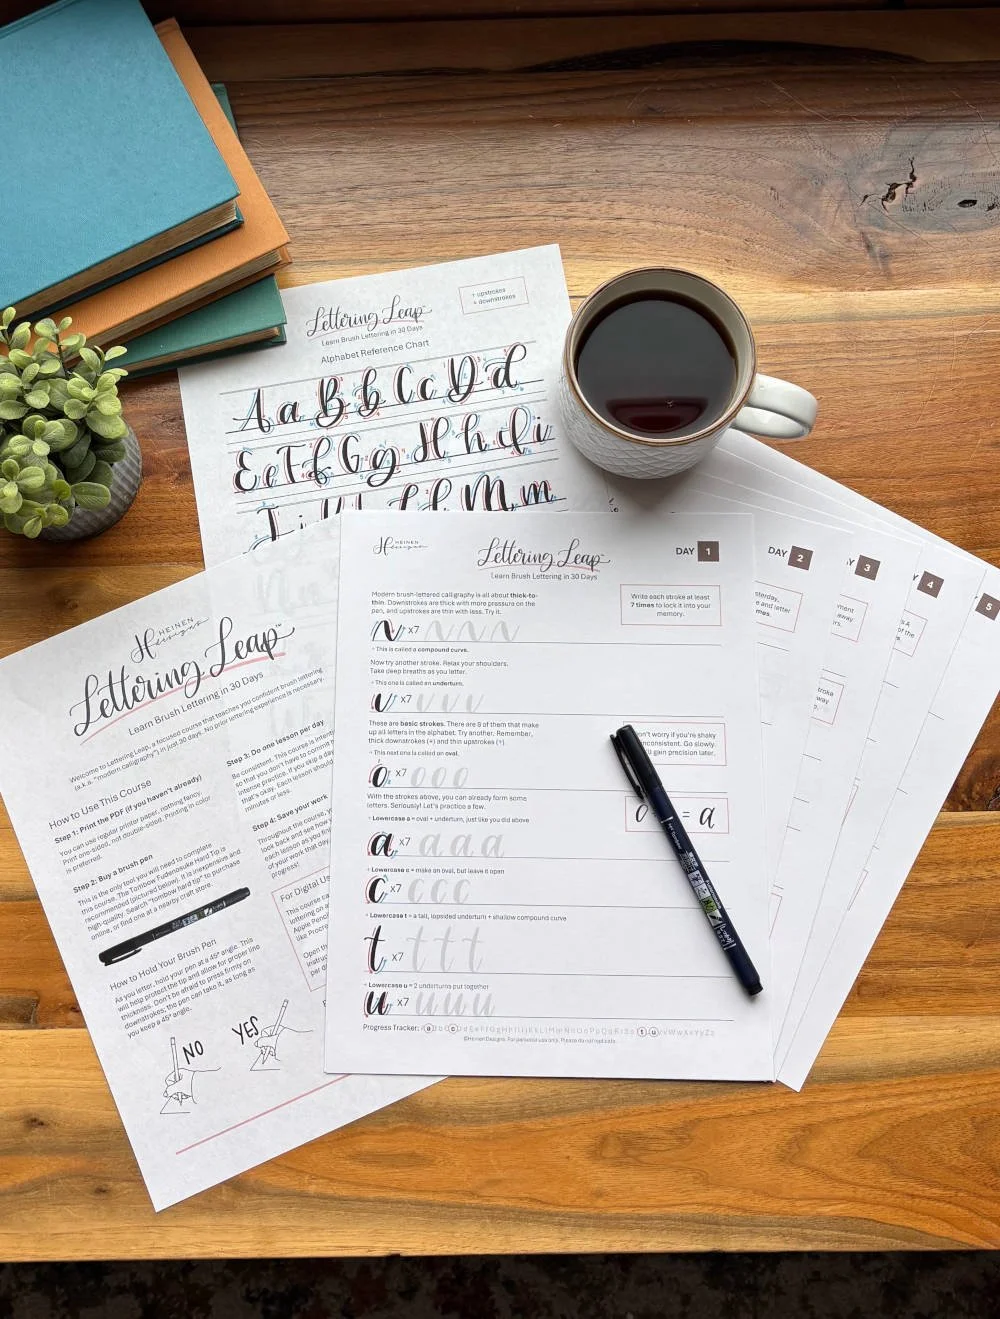 Lettering Leap™
Learn Brush Lettering in 30 Days
Alphabet Reference Chart
↑ upstrokes
↓ downstrokes
A a B b C c D d
E e F f G g H h i
M m
HEINEN
Designs
Lettering Leap™
Learn Brush Lettering in 30 Days
Welcome to Lettering Leap, a focused course that teaches you confident brush lettering
(a.k.a. "modern calligraphy") in just 30 days. No prior lettering experience is necessary.
How to Use This Course
Step 1: Print the PDF (if you haven't already)
You can use regular printer paper, nothing fancy.
Print one-sided, not double-sided. Printing in color
is preferred.
Step 2: Buy a brush pen
This is the only tool you will need to complete
this course. The Tombow Fudenosuke Hard Tip is
recommended (pictured below). It is inexpensive and
high-quality. Search "tombow hard tip" to purchase
online, or find one at a nearby craft store.
How to Hold Your Brush Pen
As you letter, hold your pen at a 45° angle. This
will help protect the tip and allow for proper line
thickness. Don't be afraid to press firmly on
downstrokes; the pen can take it, as long as
you keep a 45° angle.
NO
YES
Step 3: Do one lesson per day
Be consistent. This course is
so that you don't have to commit
intense practice. If you skip a day
that's okay. Each lesson should
minutes or less.
Step 4: Save your work
Throughout the course,
look back and see how
each lesson as you
of your work that day
progress!
For Digital
This course
lettering on a
Apple Pencil
like Procre
Open th
instruc
par d
HEINEN
Designs
Lettering Leap™
Learn Brush Lettering in 30 Days
DAY 1
Modern brush-lettered calligraphy is all about thick-to-
thin. Downstrokes are thick with more pressure on the
pen, and upstrokes are thin with less. Try it.
Write each stroke at least
7 times to lock it into your
memory.
x7
This is called a compound curve.
Now try another stroke. Relax your shoulders.
Take deep breaths as you letter.
This one is called an underturn.
x7
These are basic strokes. There are 9 of them that make
up all letters in the alphabet. Try another. Remember,
thick downstrokes (↓) and thin upstrokes (↑).
This next one is called an oval.
n't worry if you're shaky
inconsistent. Go slowly.
ll gain precision later.
x7
With the strokes above, you can already form some
letters. Seriously! Let's practice a few.
= a
Lowercase a = oval + underturn, just like you did above
a x7 a a a
Lowercase c = make an oval, but leave it open
c x7 c c c
Lowercase t = a tall, lopsided underturn + shallow compound curve
t x7 t t t
Lowercase u = 2 underturns put together
u x7 u u u
Progress Tracker: a b c d E e F f G g H h I i J j K k L l M m N n O o P p Q q R r S s t u V v W w X x Y y Z z
©Heinen Designs. For personal use only. Please do not replicate.
DAY 2
sterday,
e and letter
mes.
3
ment
away
rs.
troka
way
4
of the
5